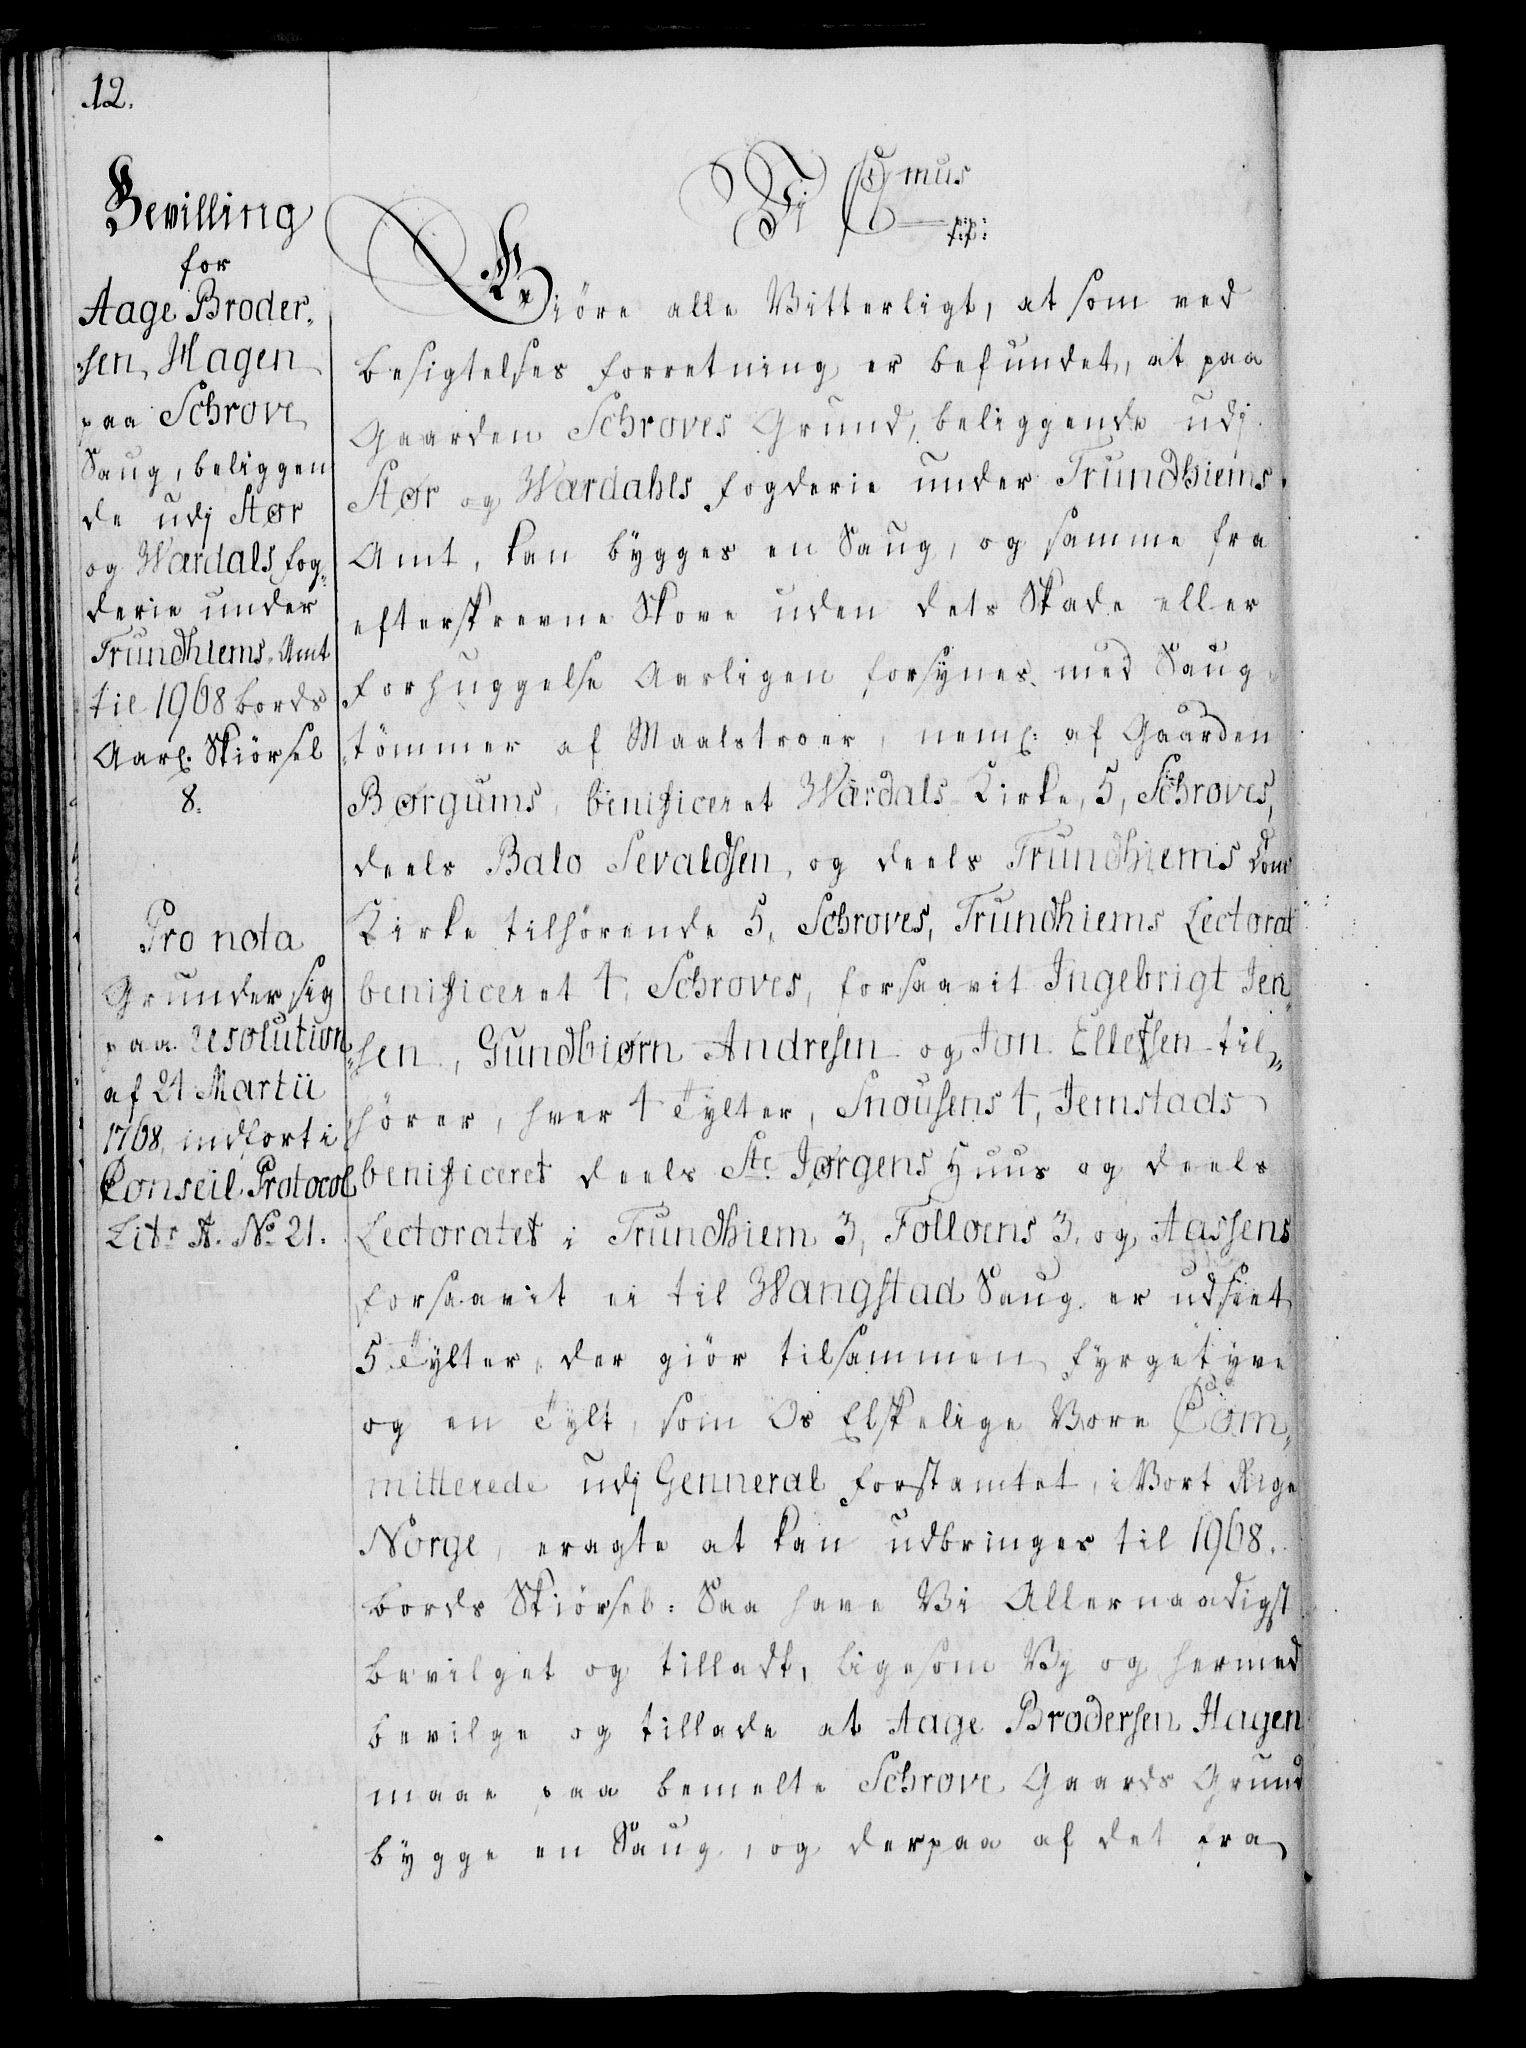 12.
Bevilling
for
Aage Broder,
sen Hagen
paa Schrove
Saug, beliggen
de udj Stør
og Værdals fog,
derie under
Trundhiems Amt
til 1968 bords
Aarl. Skiörsel
8.
Pro nota
Grunder sig
paa Resolution
af 21 Martii
1768, indført i
Conseil Protocol
Litr A. No 21.
Vi C mus
p:p:
Giöre alle Vitterligt, at som ved
besigtelses forretning er befundet, at paa
Gaarden Schroves Grund, beliggende udj
Stør og Værdahls fogderie under Trundhiems
Amt, kan bÿgges en Saug, og samme fra
efterskrevne Skove uden dets Skade eller
forhuggelse Aarligen forsÿnes med Saug
tömmer af Maalstroer, neml: af Gaarden
Børgums, benificeret Værdals Kirke, 5, Schroves,
deels Balo Sevaldsen, og deels Trundhiems Dom
Kirke tilhörende 5, Schroves, Trundhiems Lectorat
benificeret 4, Schroves, forsaavit Ingebrigt Jen,
sen, Gundbiørn Andresen og Jon Ellefsen til,,
hörer, hver 4 Tÿlter, Snousens 4, Jemstads
benificeret deels Stc. Jørgens Huus og deels
Lectoratet i Trundhiem 3, Folloens 3, og Aassens
forsaavit ei til Wangstad Saug er udseet
5 Tÿlter, der giör tilsammen fÿrgetÿve
og en Tÿlt, som Os Elskelige Vore Com,
mitterede udj Genneral forstamtet, i Vort Rige
Norge, eragte at kan udbringes til 1968.
bords Skiörsel: Saa have Vi Allernaadigst
bevilget og tilladt, ligesom Vÿ og hermed
bevilge og tillade at Aage Brodersen Hagen
maae paa bemelte Schrove Gaards Grund
bÿgge en Saug, og derpaa af det fra